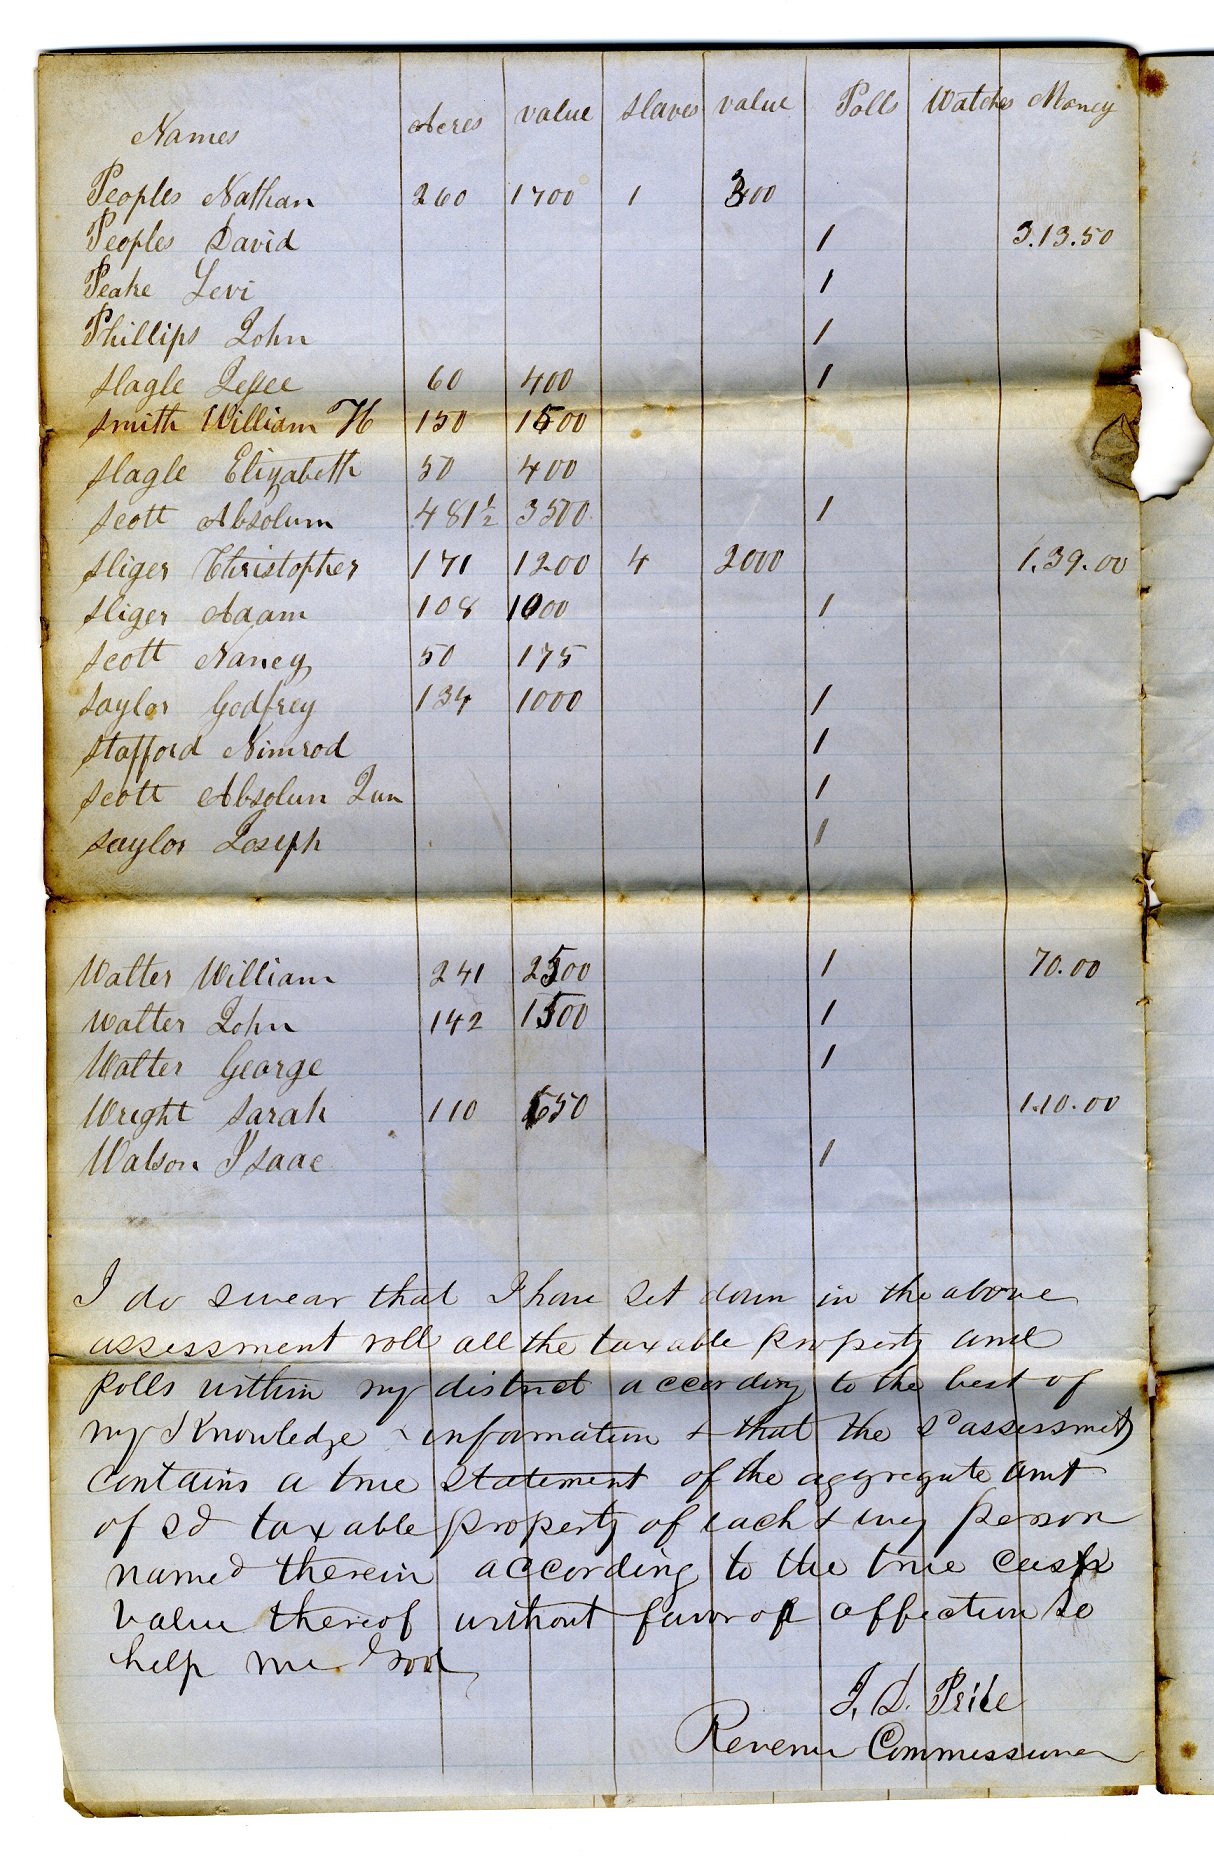 Names Acres value Slaves value Polls Watches Money
Peoples Nathan 260 1700 1 300
Peoples David 1 3.13.50
Peake Levi 1
Phillips John 1
Slagle Jessee 60 400 1
Smith William H 150 1500
Slagle Elizabeth 50 400
Scott Absolum 481½ 3500 1
Sliger Christopher 171 1200 4 2000 1.39.00
Sliger Adam 108 1000 1
Scott Nancy 50 175
Saylor Godfrey 134 1000 1
Stafford Nimrod 1
Scott Absolum Jun 1
Saylor Joseph 1
Walter William 241 2500 1 70.00
Walter John 142 1500 1
Walter George 1
Wright Sarah 110 650 1.10.00
Watson Isaac 1
I do swear that I have set down in the above
assessment roll all the taxable property and
polls within my district according to the best of
my Knowledge & information & that the sd assessmt
contains a true statement of the aggregate amt
of sd taxable property of each & evry person
named therein according to the true cash
value thereof without favor or affection so
help me God
J. D. Price
Revenue Commissioner